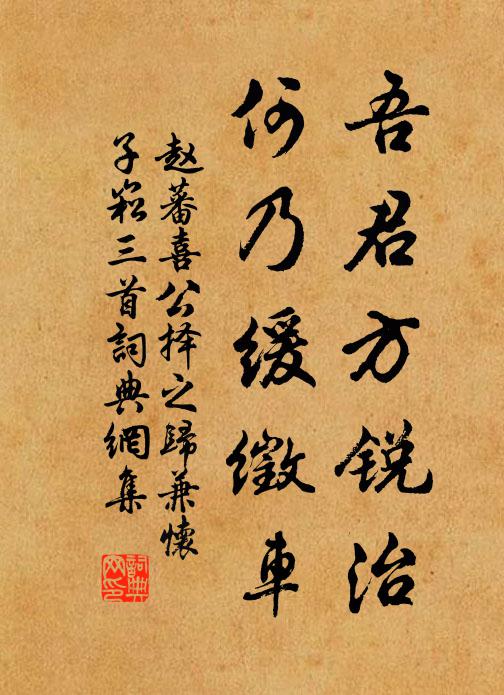 吾君方锐治
何乃缓徵車
赵蕃喜公择之歸兼懷
子崧三首詞典網集
詞典网印